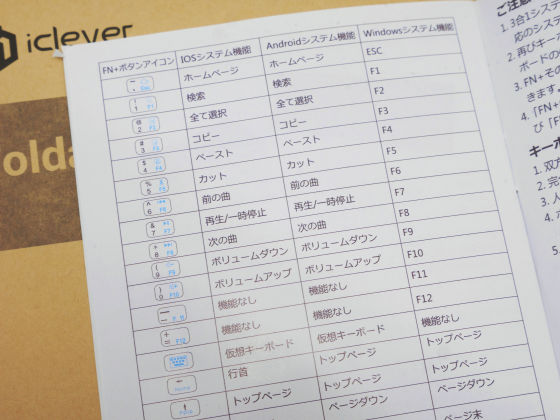 iclever
olda
FN+ボタンアイコン IOSシステム機能 Androidシステム機能 Windowsシステム機能
Esc ホームページ ホームページ ESC
1 F1 検索 検索 F1
@ 2 F2 全て選択 全て選択 F2
# 3 F3 コピー コピー F3
$ 4 F4 ペースト ペースト F4
% 5 F5 カット カット F5
^ 6 F6 前の曲 前の曲 F6
& 7 F7 再生/一時停止 再生/一時停止 F7
* 8 F8 次の曲 次の曲 F8
( 9 F9 ボリュームダウン ボリュームダウン F9
) 0 F10 ボリュームアップ ボリュームアップ F10
F11 機能なし 機能なし F11
+ = F12 機能なし 機能なし F12
仮想キーボード 仮想キーボード 機能なし
Home 行首 トップページ トップページ
トップページ トップページ トップページ
ページダウン ページダウン
ページ末
ご注意
1. 3合1システ
応のシステ
2. 再びキーボ
ボードの
3. FN+その
きます。
4. 「FN+
び「F
キーボ
1. 双方
2. 完
3. 人
4.
5.